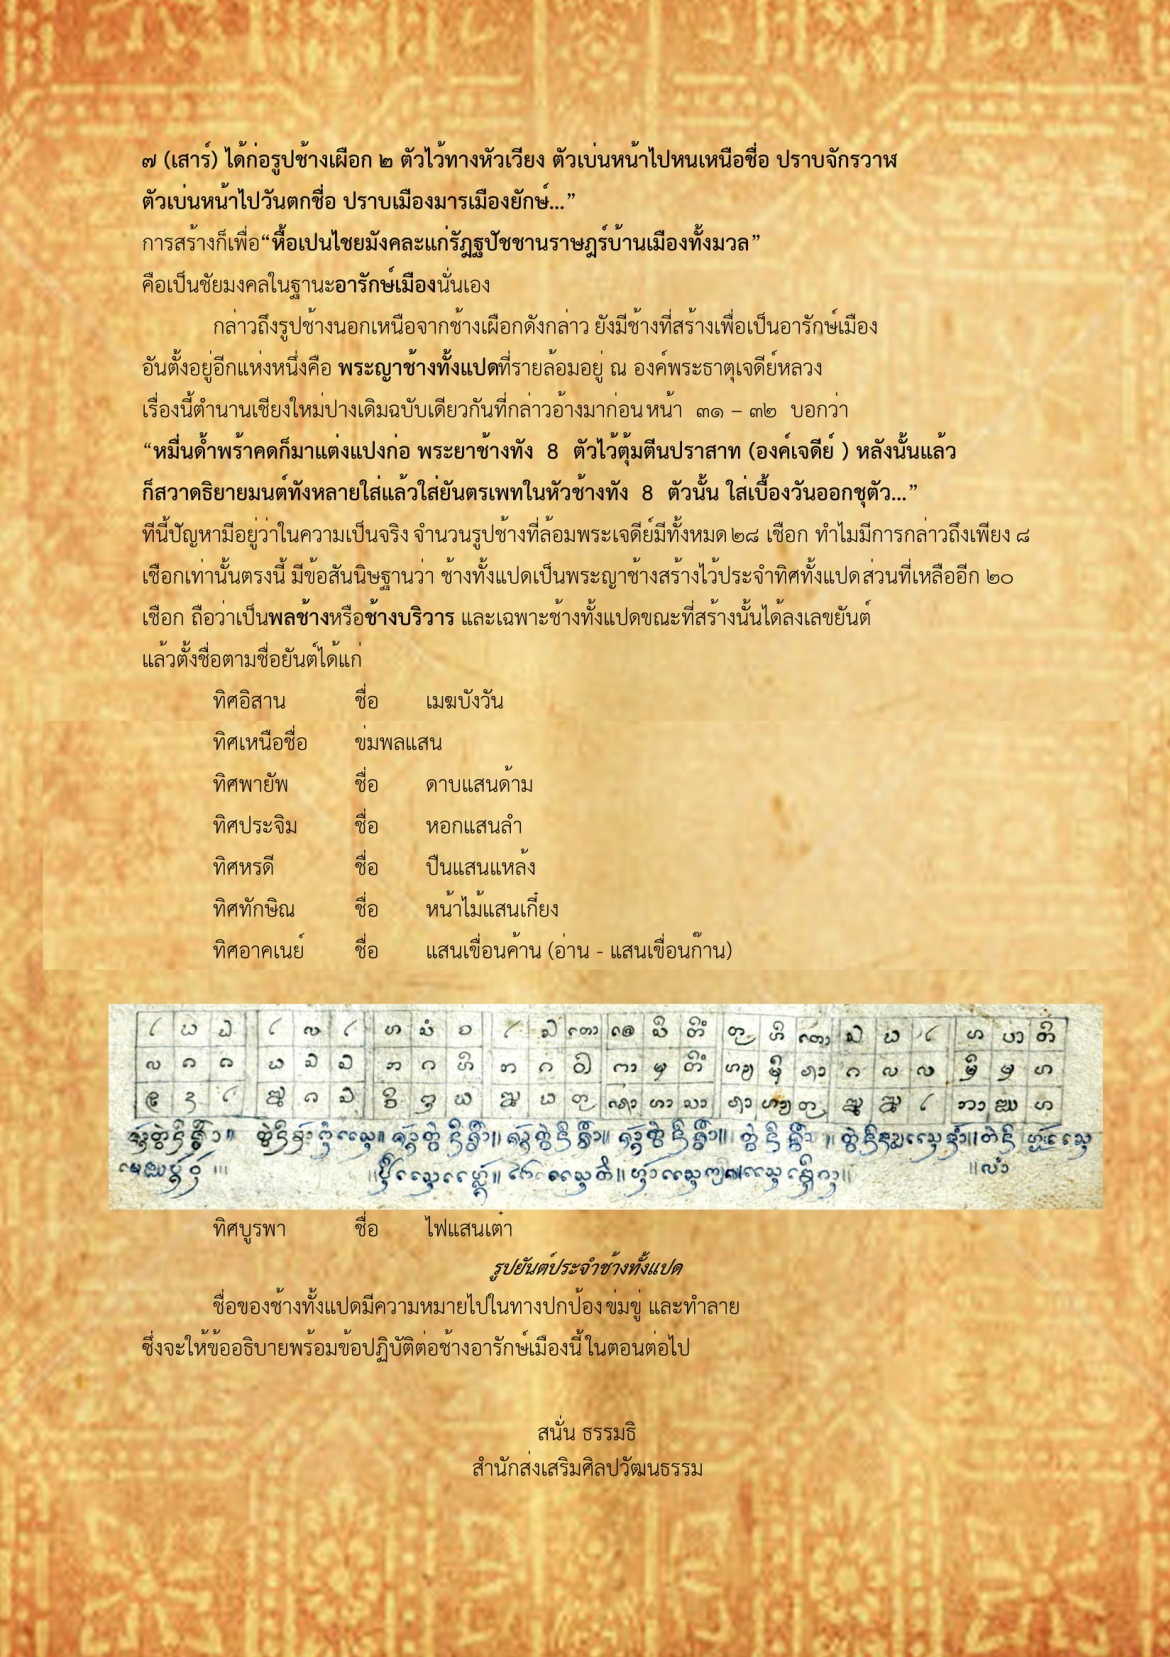 ๗ (เสาร์) ได้ก่อรูปช้างเผือก ๒ ตัวไว้ทางหัวเวียง ตัวเบ่นหน้าไปหนเหนือชื่อ ปราบจักรวาฬ
ตัวเบ่นหน้าไปวันตกชื่อ ปราบเมืองมารเมืองยักษ์...”
การสร้างก็เพื่อ“หื้อเปนไชยมังคละแก่รัฎฐปัชชานราษฎร์บ้านเมืองทั้งมวล”
คือเป็นชัยมงคลในฐานะอารักษ์เมืองนั่นเอง
กล่าวถึงรูปช้างนอกเหนือจากช้างเผือกดังกล่าว ยังมีช้างที่สร้างเพื่อเป็นอารักษ์เมือง
อันตั้งอยู่อีกแห่งหนึ่งคือ พระญาช้างทั้งแปดที่รายล้อมอยู่ ณ องค์พระธาตุเจดีย์หลวง
เรื่องนี้ตำนานเชียงใหม่ปางเดิมฉบับเดียวกันที่กล่าวอ้างมาก่อน หน้า ๓๑ – ๓๒ บอกว่า
“หมื่นด้ำพร้าคดก็มาแต่งแปงก่อ พระยาช้างทัง 8 ตัวไว้ตุ้มตีนปราสาท (องค์เจดีย์ ) หลังนั้นแล้ว
ก็สวาดธิยายมนต์ทังหลายใส่แล้วใส่ยันตรเพทในหัวช้างทัง 8 ตัวนั้น ใส่เบื้องวันออกชุตัว...”
ทีนี้ปัญหามีอยู่ว่าในความเป็นจริง จำนวนรูปช้างที่ล้อมพระเจดีย์มีทั้งหมด ๒๘ เชือก ทำไมมีการกล่าวถึงเพียง ๘
เชือกเท่านั้นตรงนี้ มีข้อสันนิษฐานว่า ช้างทั้งแปดเป็นพระญาช้างสร้างไว้ประจำทิศทั้งแปด ส่วนที่เหลืออีก ๒๐
เชือก ถือว่าเป็นพลช้างหรือช้างบริวาร และเฉพาะช้างทั้งแปดขณะที่สร้างนั้นได้ลงเลขยันต์
แล้วตั้งชื่อตามชื่อยันต์ได้แก่
ทิศอิสาน ชื่อ เมฆบังวัน
ทิศเหนือชื่อ ข่มพลแสน
ทิศพายัพ ชื่อ ดาบแสนด้าม
ทิศประจิม ชื่อ หอกแสนลำ
ทิศหรดี ชื่อ ปืนแสนแหล้ง
ทิศทักษิณ ชื่อ หน้าไม้แสนเกี๋ยง
ทิศอาคเนย์ ชื่อ แสนเขื่อนค้าน (อ่าน - แสนเขื่อนก๊าน)
ทิศบูรพา ชื่อ ไฟแสนเต๋า
รูปยันต์ประจำช้างทั้งแปด
ชื่อของช้างทั้งแปดมีความหมายไปในทางปกป้อง ข่มขู่ และทำลาย
ซึ่งจะให้ข้ออธิบายพร้อมข้อปฏิบัติต่อช้างอารักษ์เมืองนี้ ในตอนต่อไป
สนั่น ธรรมธิ
สำนักส่งเสริมศิลปวัฒนธรรม